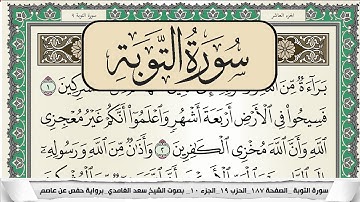 الجزء العاشر
سورة التوبة ٩
سُورَةُ التَّوْبَةِ
بَرَاءَةٌ مِّنَ ... ـرِكِينَ ١
فَسِيحُوا۟ فِى ٱلْأَرْضِ أَرْبَعَةَ أَشْهُرٍ وَٱعْلَمُوٓا۟ أَنَّكُمْ غَيْرُ مُعْجِزِى
ٱللَّهِ وَأَنَّ ٱللَّهَ مُخْزِى ٱلْكَٰفِرِينَ ٢ وَأَذَٰنٌ مِّنَ ٱللَّهِ وَرَسُولِهِۦٓ إِلَى
سورة التوبة _الصفحة ١٨٧_ الحزب ١٩_الجزء ١٠_ بصوت الشيخ سعد الغامدي_برواية حفص عن عاصم